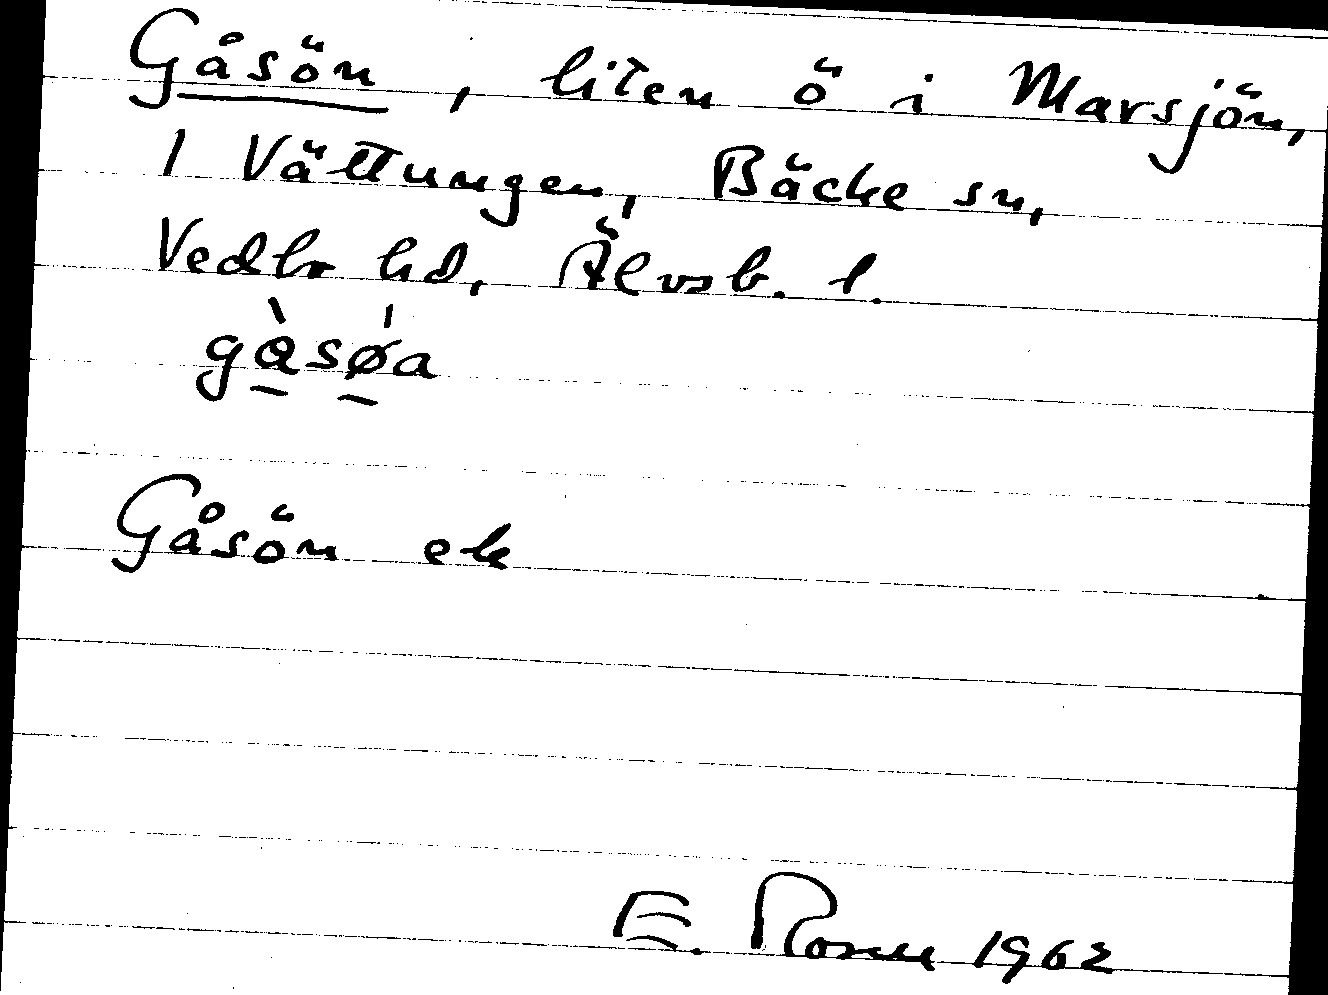 Gåsön, liten ö i Marsjön,
1 Vättungen, Bäcke sn,
Vedbo hd, Älvsb. l.
gàsø̍a
Gåsön ek
E. Rosell 1962